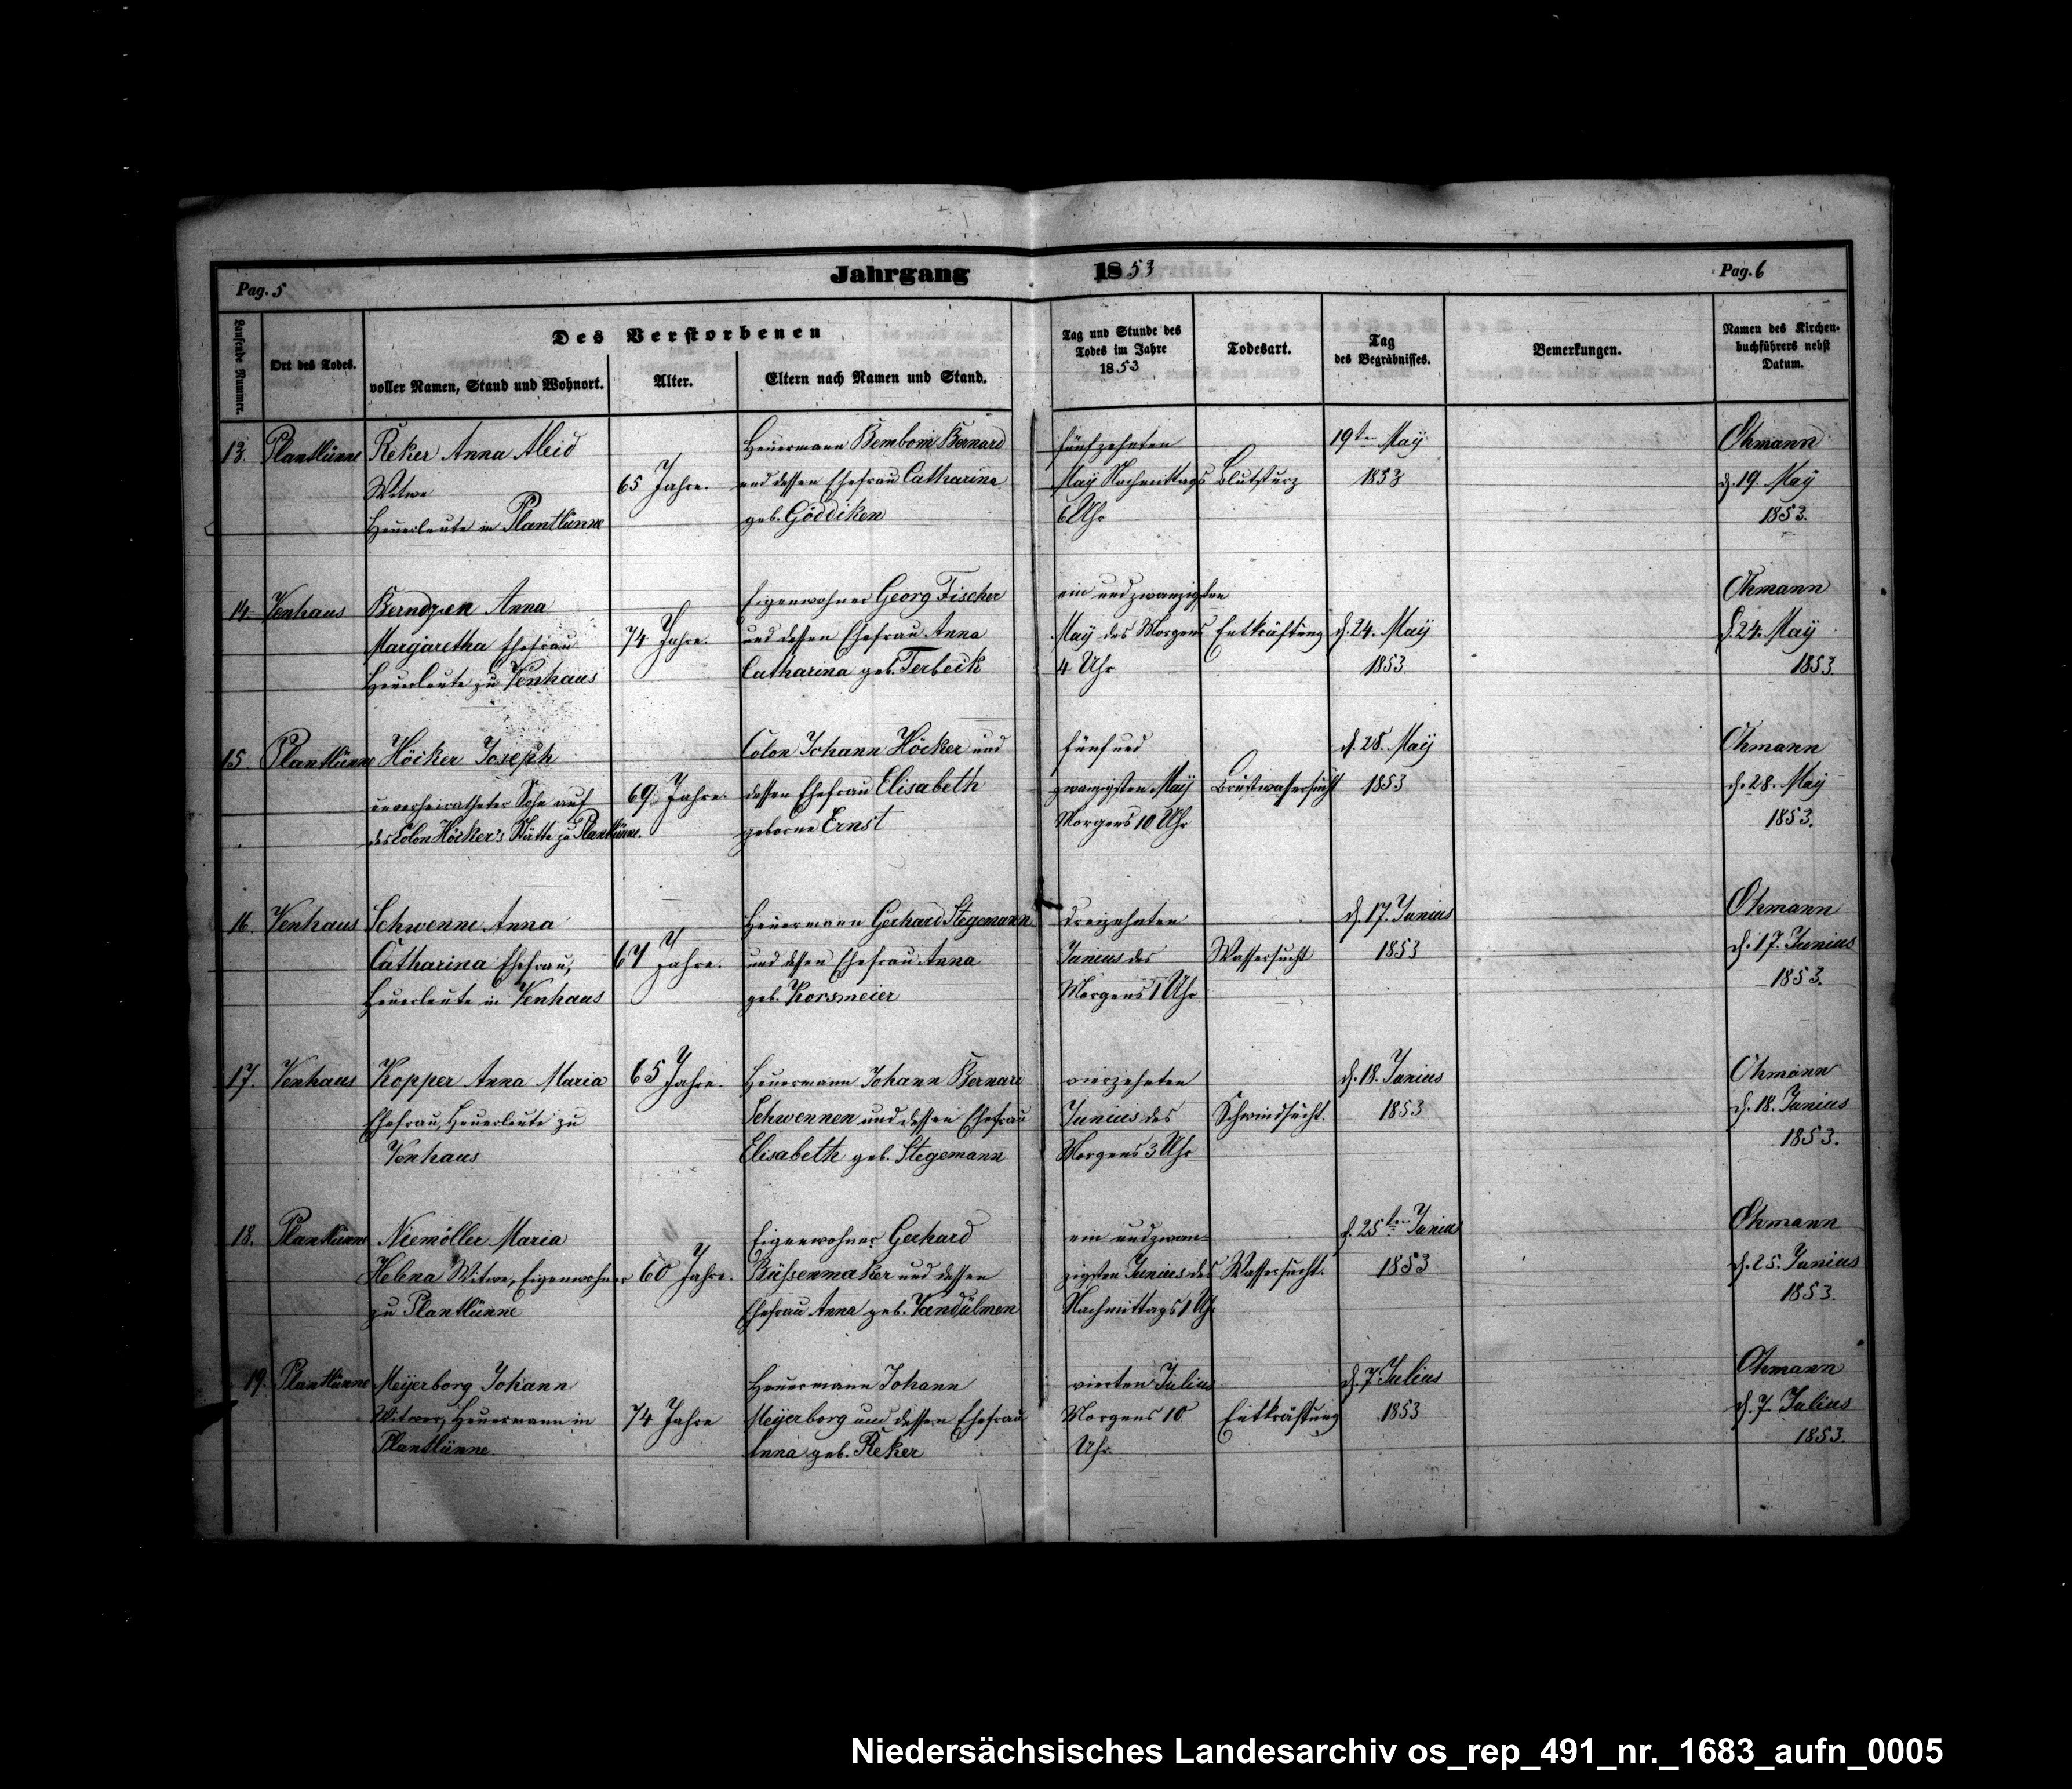 Jahrgang 1853
Pag. 5
Pag. 6
Laufende Nummer.
Ort des Todes.
Des Verstorbenen
voller Namen, Stand und Wohnort.
Alter.
Eltern nach Namen und Stand.
Tag und Stunde des
Todes im Jahre
1853
Todesart.
Tag
des Begräbnisses.
Bemerkungen.
Namen des Kirchen-
buchführers nebst
Datum.
13. Plantlünne Reker Anna Aleid Heuermann Bembom Bernard fünfzehnten 19ten May Ohmann
Witwe 65 Jahre. und dessen Ehefrau Catharina May Nachmittags Blutsturz 1853 d. 19. May
Heuerleute in Plantlünne geb. Göddiken 6 Uhr 1853.
14. Venhaus Berndzen Anna Eigenwohner Georg Fischer ein und zwanzigsten Ohmann
Margaretha Ehefrau 74 Jahre. und dessen Ehefrau Anna May des Morgens Entkräftung d. 24. May d. 24. May
Heuerleute zu Venhaus Catharina geb. Terbeck 4 Uhr 1853. 1853.
15. Plantlünne Höcker Joseph Colon Johann Höcker und fünf und d. 28. May Ohmann
unverheiratheter Sohn auf 69 Jahre. dessen Ehefrau Elisabeth zwanzigsten May Brustwassersucht 1853 d. 28. May
des Colon Höcker's Stätte zu Plantlünne. geborne Ernst Morgens 10 Uhr 1853.
16. Venhaus Schwenne Anna Heuermann Gerhard Stegemann dreizehnten d. 17. Junius Ohmann
Catharina Ehefrau, 67 Jahre. und dessen Ehefrau Anna Junius des Wassersucht 1853 d. 17. Junius
Heuerleute in Venhaus geb. Morgens 1 Uhr 1853.
17. Venhaus Kopper Anna Maria 65 Jahre. Heuermann Johann Bernard vierzehnten d. 18. Junius Ohmann
Ehefrau, Heuerleute zu Schwennen und dessen Ehefrau Junius des Schwindsucht. 1853 d. 18. Junius
Venhaus Elisabeth geb. Stegemann Morgens 3 Uhr 1853.
18. Plantlünne Niemöller Maria Eigenwohner Gerhard ein und zwan- d. 25ten Junius Ohmann
Helena Witwe, Eigenwohner 60 Jahre. Büssenmaker und dessen zigsten Junius des Wassersucht. 1853 d. 25. Junius
zu Plantlünne Ehefrau Anna geb. Vandülmen Nachmittags 1 Uhr 1853.
19. Plantlünne Meyerborg Johann Heuermann Johann vierten Julius d. 7 Julius Ohmann
Witwer, Heuermann in 74 Jahre Meyerborg und dessen Ehefrau Morgens 10 Entkräftung 1853 d. 7. Julius
Plantlünne. Anna geb. Reker Uhr. 1853.
Niedersächsisches Landesarchiv os_rep_491_nr._1683_aufn_0005